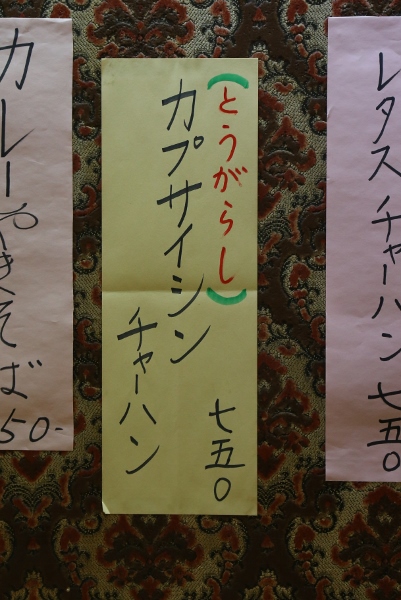 レタスチャーハン
七五〇
(とうがらし)
カプサイシン
チャーハン
七五〇
カレーやきそば
50-